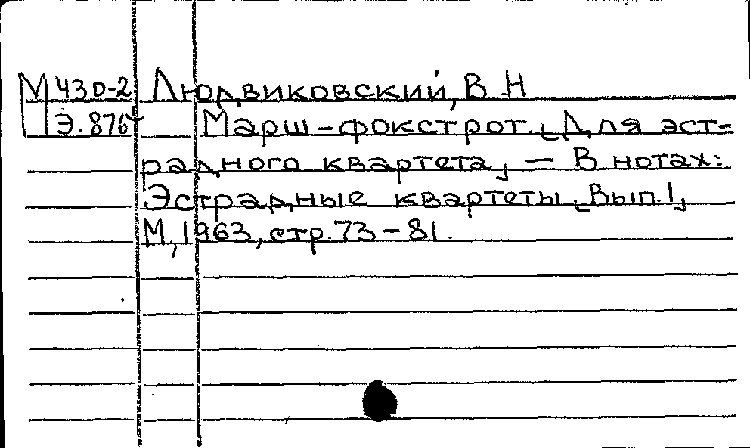 М 43D-2 Людвиковский, В. Н
Э.876 Марш-фокстрот. [Для эст-
радного квартета] — В нотах:
Эстрадные квартеты [Вып.1]
М, 1963, стр. 73-81.